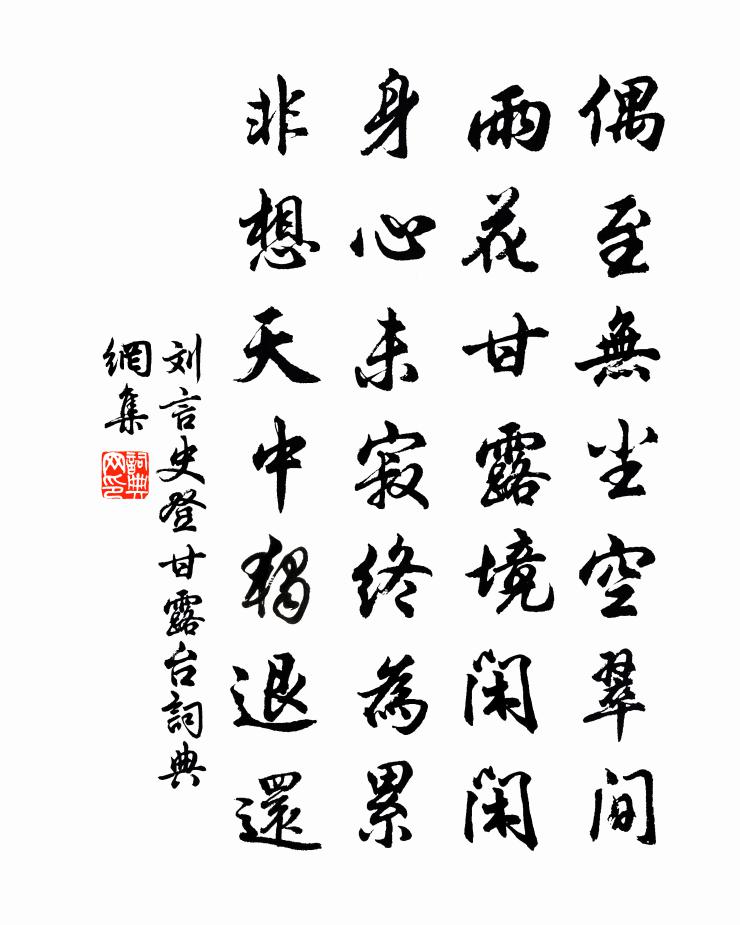 偶至無尘空翠间
雨花甘露境闲闲
身心未寂終為累
非想天中獨退還
刘言史登甘露台詞典
網集
詞典网印